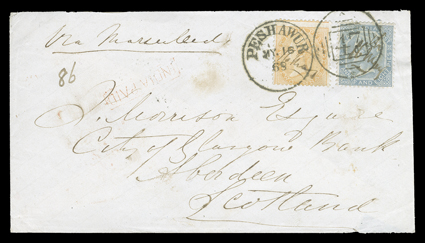 Via Marseilles
PESHAWUR
MY 16
68
86
J. Morrison Esquire
City of Glasgow Bank
Aberdeen
Scotland